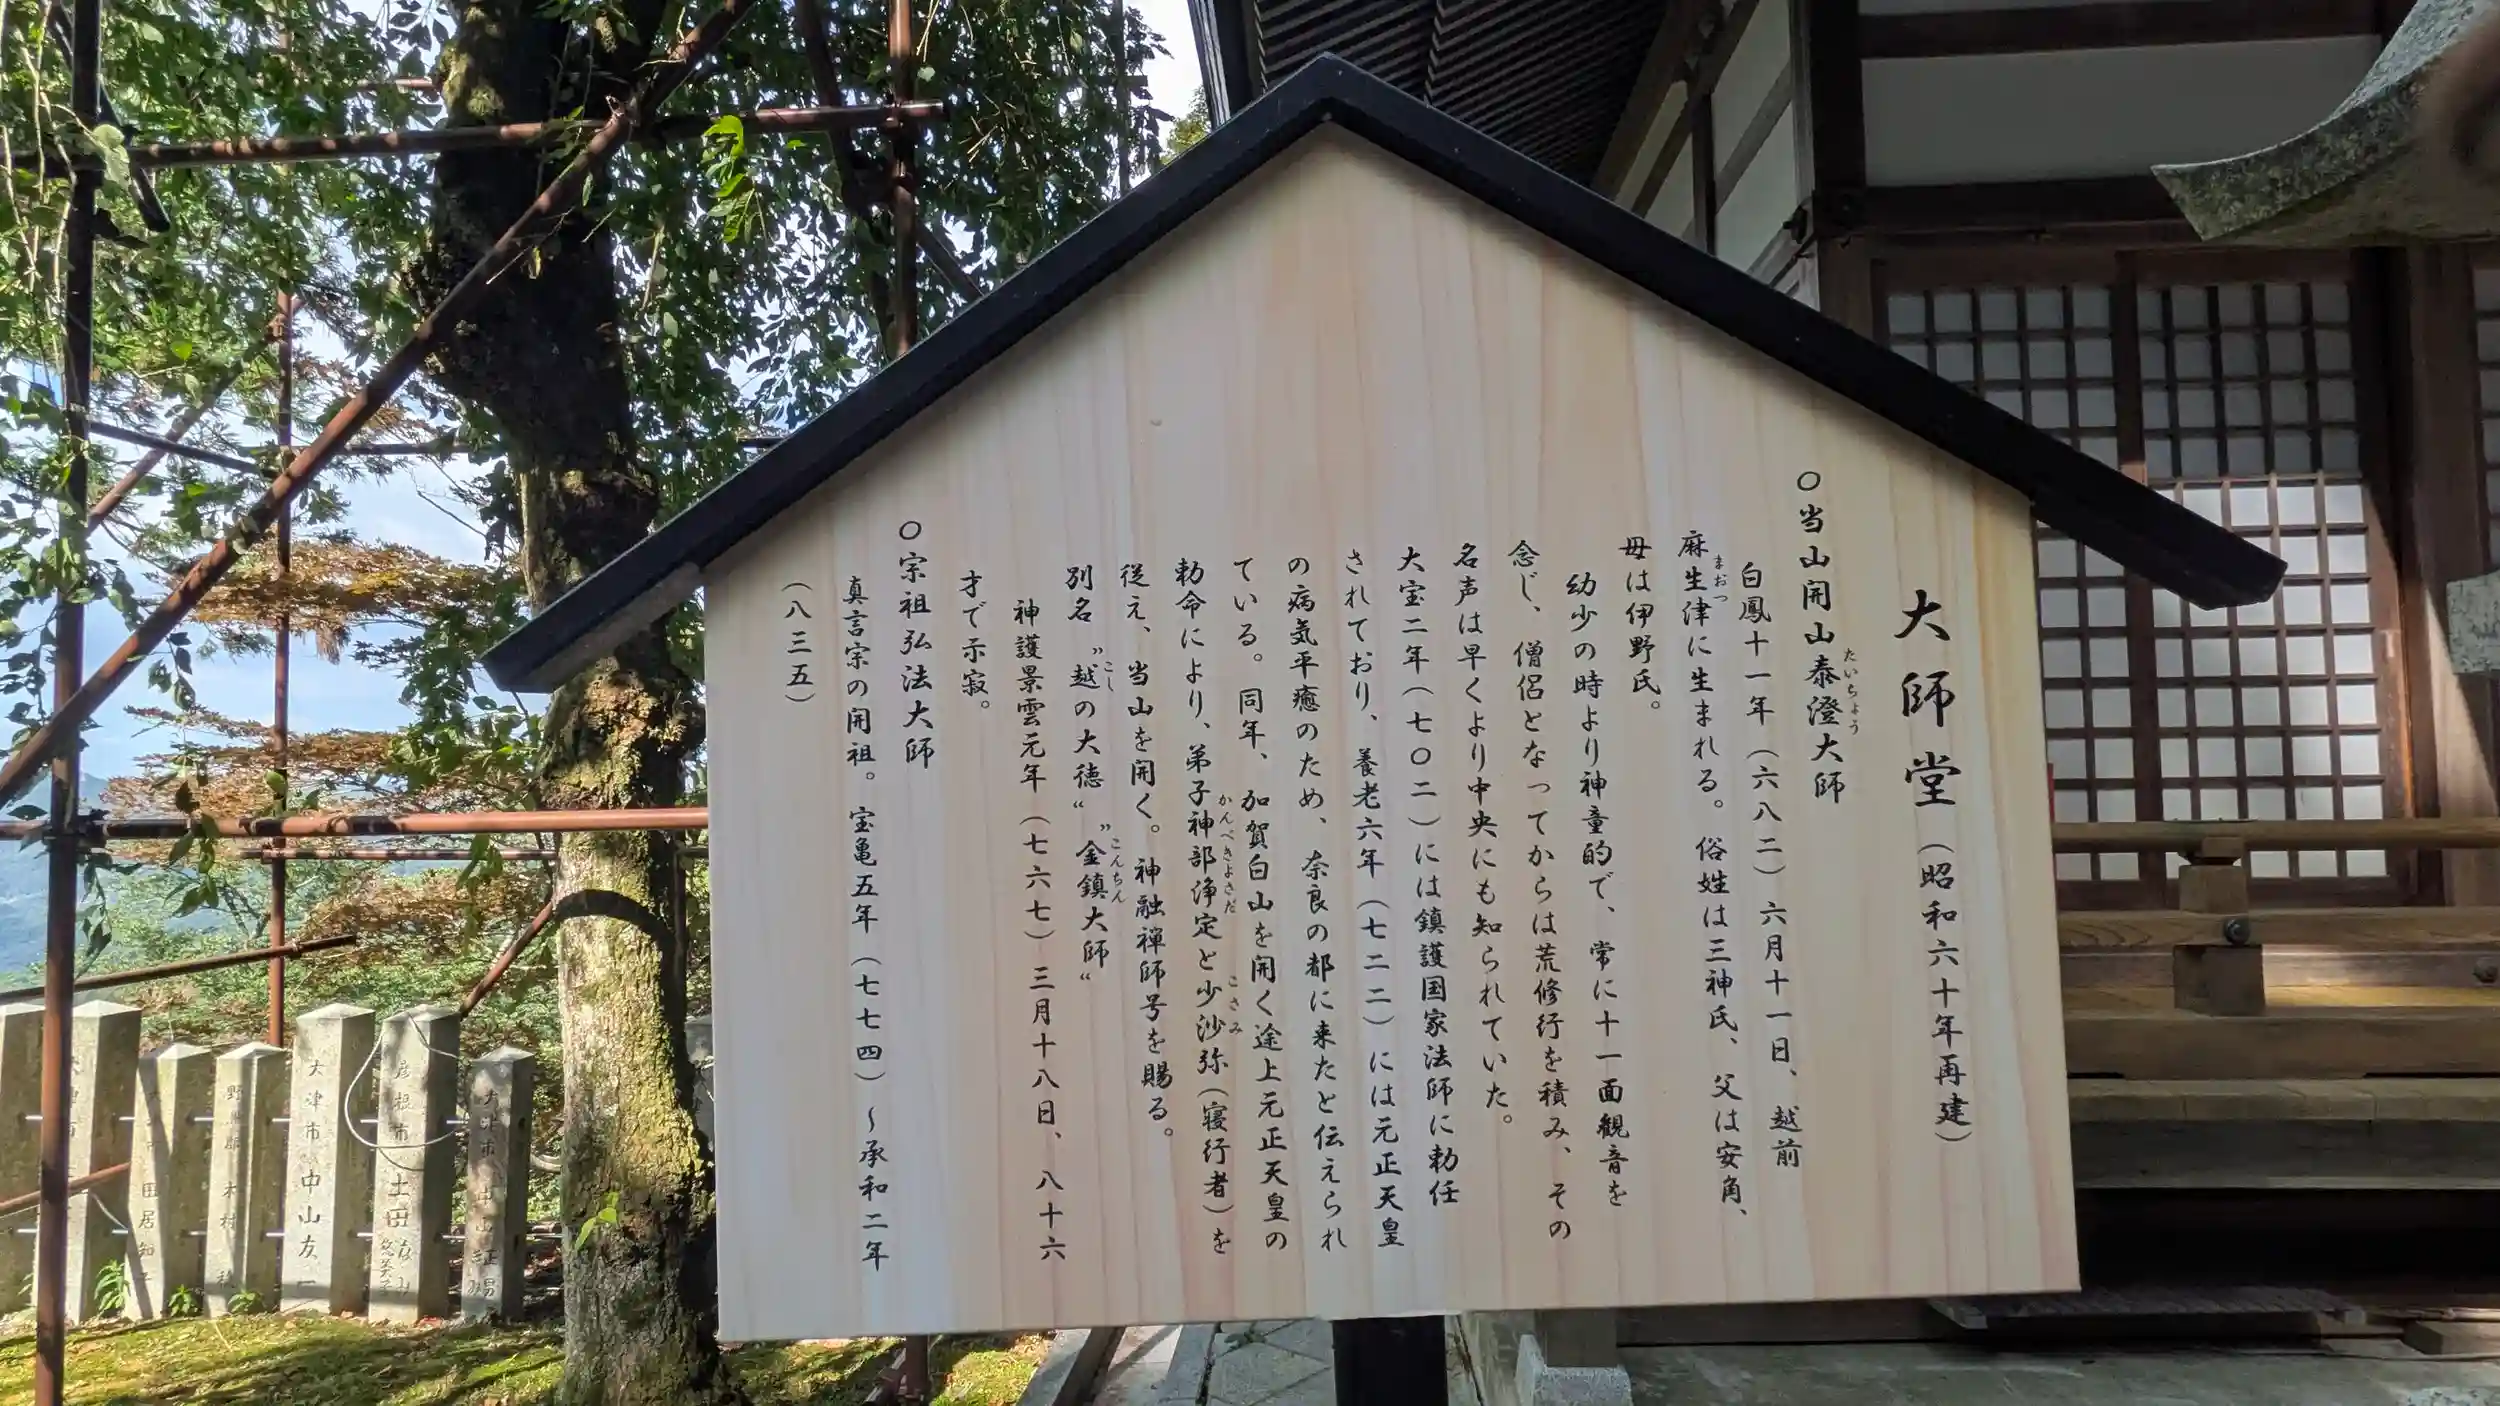 大師堂（昭和六十年再建）
○当山開山泰澄大師
たいちょう
白鳳十一年（六八二）六月十一日、越前
麻生津に生まれる。俗姓は三神氏、父は安角、
まおつ
母は伊野氏。
幼少の時より神童的で、常に十一面観音を
念じ、僧侶となってからは荒修行を積み、その
名声は早くより中央にも知られていた。
大宝二年（七〇二）には鎮護国家法師に勅任
されており、養老六年（七二二）には元正天皇
の病気平癒のため、奈良の都に来たと伝えられ
ている。同年、加賀白山を開く途上元正天皇の
勅命により、弟子神部浄定と少沙弥（寝行者）を
かんべきよさだ
こさみ
従え、当山を開く。神融禅師号を賜る。
別名〝越の大徳〟〝金鎮大師〟
こし
こんちん
神護景雲元年（七六七）三月十八日、八十六
才で示寂。
○宗祖弘法大師
真言宗の開祖。宝亀五年（七七四）～承和二年
（八三五）
大津市 中山友一
彦根市
野
木村
田居